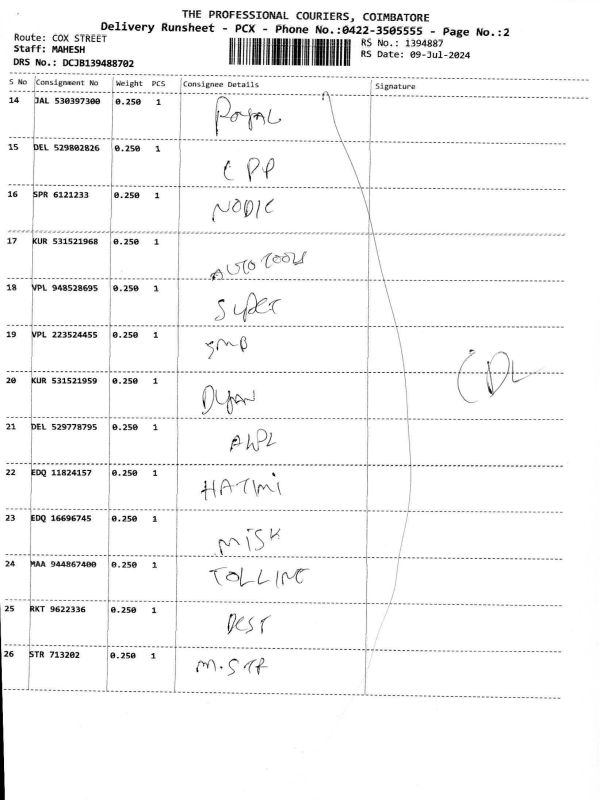 THE PROFESSIONAL COURIERS, COIMBATORE
Delivery Runsheet - PCX - Phone No.:0422-3505555 - Page No.:2
Route: COX STREET
RS No.: 1394887
Staff: MAHESH
RS Date: 09-Jul-2024
DRS No.: DCJB139488702
S No Consignment No Weight PCS Consignee Details Signature
14 JAL 530397300 0.250 1 ROYAL
15 DEL 529802826 0.250 1 CPP
16 SPR 6121233 0.250 1 NODIC
17 KUR 531521968 0.250 1 AUTO TOOLS
18 VPL 948528695 0.250 1 SUPER
19 VPL 223524455 0.250 1 SMB
20 KUR 531521959 0.250 1
21 DEL 529778795 0.250 1 AWPL
22 EDQ 11824157 0.250 1 HATIMI
23 EDQ 16696745 0.250 1 MISK
24 MAA 944867400 0.250 1 TOLLINE
25 RKT 9622336 0.250 1 DEST
26 STR 713202 0.250 1